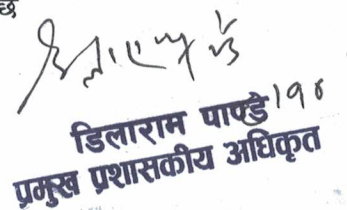 छ
डिलाराम पाण्डे
प्रमुख प्रशासकीय अधिकृत